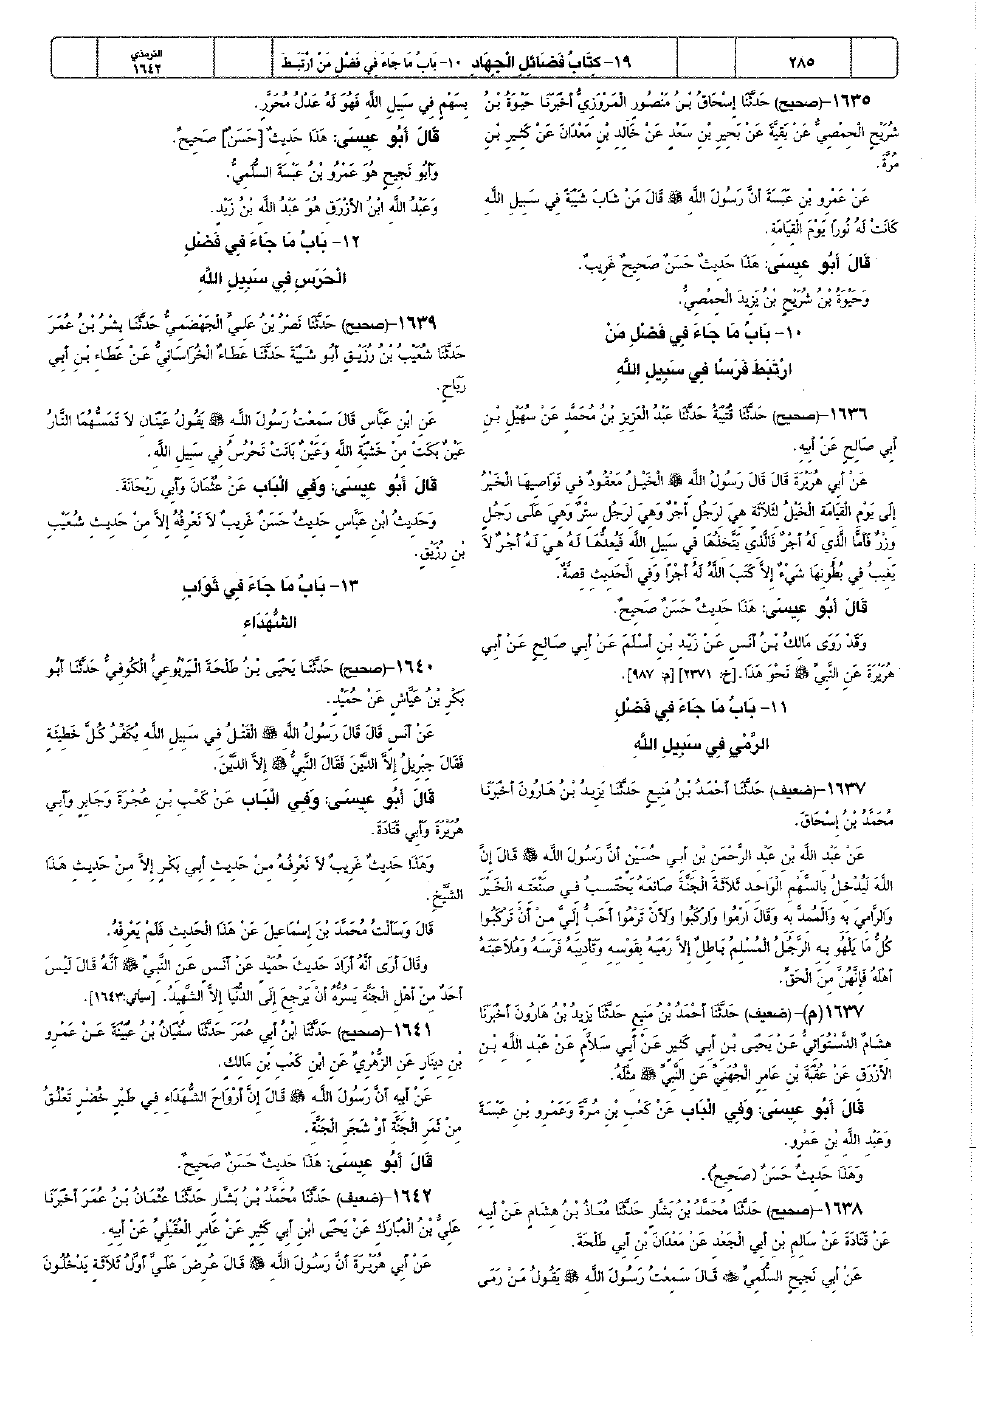 ٢٨٥
١٩- كِتَابُ فَضَائِلِ الْجِهَادِ ١٠- بَابُ مَا جَاءَ فِي فَضْلِ مَنْ ارْتَبَطَ
الترمذي
١٦٤٢
١٦٣٥-(صحيح) حَدَّثَنَا إِسْحَاقُ بْنُ مَنْصُورٍ الْمَرْوَزِيُّ أَخْبَرَنَا حَيْوَةُ بْنُ
شُرَيْحٍ الْحِمْصِيُّ عَنْ بَقِيَّةَ عَنْ بَحِيرِ بْنِ سَعْدٍ عَنْ خَالِدِ بْنِ مَعْدَانَ عَنْ كَثِيرِ بْنِ
مُرَّةَ.
عَنْ عَمْرِو بْنِ عَبَسَةَ أَنَّ رَسُولَ اللَّهِ ﷺ قَالَ مَنْ شَابَ شَيْبَةً فِي سَبِيلِ اللَّهِ
كَانَتْ لَهُ نُوراً يَوْمَ الْقِيَامَةِ.
قَالَ أَبُو عِيسَى: هَذَا حَدِيثٌ حَسَنٌ صَحِيحٌ غَرِيبٌ.
وَحَيْوَةُ بْنُ شُرَيْحٍ بْنُ يَزِيدَ الْحِمْصِيُّ.
١٠- بَابُ مَا جَاءَ فِي فَضْلِ مَنْ
ارْتَبَطَ فَرَسًا فِي سَبِيلِ اللَّهِ
١٦٣٦-(صحيح) حَدَّثَنَا قُتَيْبَةُ حَدَّثَنَا عَبْدُ الْعَزِيزِ بْنُ مُحَمَّدٍ عَنْ سُهَيْلِ بْنِ
أَبِي صَالِحٍ عَنْ أَبِيهِ.
عَنْ أَبِي هُرَيْرَةَ قَالَ قَالَ رَسُولُ اللَّهِ ﷺ الْخَيْلُ مَعْقُودٌ فِي نَوَاصِيهَا الْخَيْرُ
إِلَى يَوْمِ الْقِيَامَةِ الْخَيْلُ لِثَلَاثَةٍ هِيَ لِرَجُلٍ أَجْرٌ وَهِيَ لِرَجُلٍ سِتْرٌ وَهِيَ عَلَى رَجُلٍ
وِزْرٌ فَأَمَّا الَّذِي لَهُ أَجْرٌ فَالَّذِي يَتَّخِذُهَا فِي سَبِيلِ اللَّهِ فَيُعِدُّهَا لَهُ هِيَ لَهُ أَجْرٌ لاَ
يَغِيبُ فِي بُطُونِهَا شَيْءٌ إِلاَّ كَتَبَ اللَّهُ لَهُ أَجْرًا وَفِي الْحَدِيثِ قِصَّةٌ.
قَالَ أَبُو عِيسَى: هَذَا حَدِيثٌ حَسَنٌ صَحِيحٌ.
وَقَدْ رَوَى مَالِكُ بْنُ أَنَسٍ عَنْ زَيْدِ بْنِ أَسْلَمَ عَنْ أَبِي صَالِحٍ عَنْ أَبِي
هُرَيْرَةَ عَنِ النَّبِيِّ ﷺ نَحْوَ هَذَا. [خ: ٢٣٧١] [م: ٩٨٧].
١١- بَابُ مَا جَاءَ فِي فَضْلِ
الرَّمْيِ فِي سَبِيلِ اللَّهِ
١٦٣٧-(ضعيف) حَدَّثَنَا أَحْمَدُ بْنُ مَنِيعٍ حَدَّثَنَا يَزِيدُ بْنُ هَارُونَ أَخْبَرَنَا
مُحَمَّدُ بْنُ إِسْحَاقَ.
عَنْ عَبْدِ اللَّهِ بْنِ عَبْدِ الرَّحْمَنِ بْنِ أَبِي حُسَيْنٍ أَنَّ رَسُولَ اللَّهِ ﷺ قَالَ إِنَّ
اللَّهَ لَيُدْخِلُ بِالسَّهْمِ الْوَاحِدِ ثَلَاثَةً الْجَنَّةَ صَانِعَهُ يَحْتَسِبُ فِي صَنْعَتِهِ الْخَيْرَ
وَالرَّامِيَ بِهِ وَالْمُمِدَّ بِهِ وَقَالَ ارْمُوا وَارْكَبُوا وَلأَنْ تَرْمُوا أَحَبُّ إِلَيَّ مِنْ أَنْ تَرْكَبُوا
كُلُّ مَا يَلْهُو بِهِ الرَّجُلُ الْمُسْلِمُ بَاطِلٌ إِلاَّ رَمْيَهُ بِقَوْسِهِ وَتَأْدِيبَهُ فَرَسَهُ وَمُلاَعَبَتَهُ
أَهْلَهُ فَإِنَّهُنَّ مِنَ الْحَقِّ.
١٦٣٧(م)-(ضعيف) حَدَّثَنَا أَحْمَدُ بْنُ مَنِيعٍ حَدَّثَنَا يَزِيدُ بْنُ هَارُونَ أَخْبَرَنَا
هِشَامٌ الدَّسْتُوَائِيُّ عَنْ يَحْيَى بْنِ أَبِي كَثِيرٍ عَنْ أَبِي سَلاَّمٍ عَنْ عَبْدِ اللَّهِ بْنِ
الأَزْرَقِ عَنْ عُقْبَةَ بْنِ عَامِرٍ الْجُهَنِيِّ عَنِ النَّبِيِّ ﷺ مِثْلَهُ.
قَالَ أَبُو عِيسَى: وَفِي الْبَاب عَنْ كَعْبِ بْنِ مُرَّةَ وَعَمْرِو بْنِ عَبَسَةَ
وَعَبْدِ اللَّهِ بْنِ عَمْرٍو.
وَهَذَا حَدِيثٌ حَسَنٌ (صَحِيحٌ).
١٦٣٨-(صحيح) حَدَّثَنَا مُحَمَّدُ بْنُ بَشَّارٍ حَدَّثَنَا مُعَاذُ بْنُ هِشَامٍ عَنْ أَبِيهِ
عَنْ قَتَادَةَ عَنْ سَالِمِ بْنِ أَبِي الْجَعْدِ عَنْ مَعْدَانَ بْنِ أَبِي طَلْحَةَ.
عَنْ أَبِي نَجِيحٍ السُّلَمِيِّ قَالَ سَمِعْتُ رَسُولَ اللَّهِ ﷺ يَقُولُ مَنْ رَمَى
بِسَهْمٍ فِي سَبِيلِ اللَّهِ فَهُوَ لَهُ عَدْلُ مُحَرَّرٍ.
قَالَ أَبُو عِيسَى: هَذَا حَدِيثٌ [حَسَنٌ] صَحِيحٌ.
وَأَبُو نَجِيحٍ هُوَ عَمْرُو بْنُ عَبَسَةَ السُّلَمِيُّ.
وَعَبْدُ اللَّهِ ابْنُ الأَزْرَقِ هُوَ عَبْدُ اللَّهِ بْنُ زَيْدٍ.
١٢- بَابُ مَا جَاءَ فِي فَضْلِ
الْحَرَسِ فِي سَبِيلِ اللَّهِ
١٦٣٩-(صحيح) حَدَّثَنَا نَصْرُ بْنُ عَلِيٍّ الْجَهْضَمِيُّ حَدَّثَنَا بِشْرُ بْنُ عُمَرَ
حَدَّثَنَا شُعَيْبُ بْنُ رُزَيْقٍ أَبُو شَيْبَةَ حَدَّثَنَا عَطَاءٌ الْخُرَاسَانِيُّ عَنْ عَطَاءِ بْنِ أَبِي
رَبَاحٍ.
عَنِ ابْنِ عَبَّاسٍ قَالَ سَمِعْتُ رَسُولَ اللَّهِ ﷺ يَقُولُ عَيْنَانِ لاَ تَمَسُّهُمَا النَّارُ
عَيْنٌ بَكَتْ مِنْ خَشْيَةِ اللَّهِ وَعَيْنٌ بَاتَتْ تَحْرُسُ فِي سَبِيلِ اللَّهِ.
قَالَ أَبُو عِيسَى: وَفِي الْبَاب عَنْ عُثْمَانَ وَأَبِي رَيْحَانَةَ.
وَحَدِيثُ ابْنِ عَبَّاسٍ حَدِيثٌ حَسَنٌ غَرِيبٌ لاَ نَعْرِفُهُ إِلاَّ مِنْ حَدِيثِ شُعَيْبِ
بْنِ رُزَيْقٍ.
١٣- بَابُ مَا جَاءَ فِي ثَوَابِ
الشُّهَدَاءِ
١٦٤٠-(صحيح) حَدَّثَنَا يَحْيَى بْنُ طَلْحَةَ الْيَرْبُوعِيُّ الْكُوفِيُّ حَدَّثَنَا أَبُو
بَكْرِ بْنُ عَيَّاشٍ عَنْ حُمَيْدٍ.
عَنْ أَنَسٍ قَالَ قَالَ رَسُولُ اللَّهِ ﷺ الْقَتْلُ فِي سَبِيلِ اللَّهِ يُكَفِّرُ كُلَّ خَطِيئَةٍ
فَقَالَ جِبْرِيلُ إِلاَّ الدَّيْنَ فَقَالَ النَّبِيُّ ﷺ إِلاَّ الدَّيْنَ.
قَالَ أَبُو عِيسَى: وَفِي الْبَاب عَنْ كَعْبِ بْنِ عُجْرَةَ وَجَابِرٍ وَأَبِي
هُرَيْرَةَ وَأَبِي قَتَادَةَ.
وَهَذَا حَدِيثٌ غَرِيبٌ لاَ نَعْرِفُهُ مِنْ حَدِيثِ أَبِي بَكْرٍ إِلاَّ مِنْ حَدِيثِ هَذَا
الشَّيْخِ.
قَالَ وَسَأَلْتُ مُحَمَّدَ بْنَ إِسْمَاعِيلَ عَنْ هَذَا الْحَدِيثِ فَلَمْ يَعْرِفْهُ.
وَقَالَ أُرَى أَنَّهُ أَرَادَ حَدِيثَ حُمَيْدٍ عَنْ أَنَسٍ عَنِ النَّبِيِّ ﷺ أَنَّهُ قَالَ لَيْسَ
أَحَدٌ مِنْ أَهْلِ الْجَنَّةِ يَسُرُّهُ أَنْ يَرْجِعَ إِلَى الدُّنْيَا إِلاَّ الشَّهِيدُ. [سيأتي:١٦٤٣].
١٦٤١-(صحيح) حَدَّثَنَا ابْنُ أَبِي عُمَرَ حَدَّثَنَا سُفْيَانُ بْنُ عُيَيْنَةَ عَنْ عَمْرِو
بْنِ دِينَارٍ عَنِ الزُّهْرِيِّ عَنِ ابْنِ كَعْبِ بْنِ مَالِكٍ.
عَنْ أَبِيهِ أَنَّ رَسُولَ اللَّهِ ﷺ قَالَ إِنَّ أَرْوَاحَ الشُّهَدَاءِ فِي طَيْرٍ خُضْرٍ تَعْلُقُ
مِنْ ثَمَرِ الْجَنَّةِ أَوْ شَجَرِ الْجَنَّةِ.
قَالَ أَبُو عِيسَى: هَذَا حَدِيثٌ حَسَنٌ صَحِيحٌ.
١٦٤٢-(ضعيف) حَدَّثَنَا مُحَمَّدُ بْنُ بَشَّارٍ حَدَّثَنَا عُثْمَانُ بْنُ عُمَرَ أَخْبَرَنَا
عَلِيُّ بْنُ الْمُبَارَكِ عَنْ يَحْيَى ابْنِ أَبِي كَثِيرٍ عَنْ عَامِرٍ الْعُقَيْلِيِّ عَنْ أَبِيهِ.
عَنْ أَبِي هُرَيْرَةَ أَنَّ رَسُولَ اللَّهِ ﷺ قَالَ عُرِضَ عَلَيَّ أَوَّلُ ثَلاَثَةٍ يَدْخُلُونَ